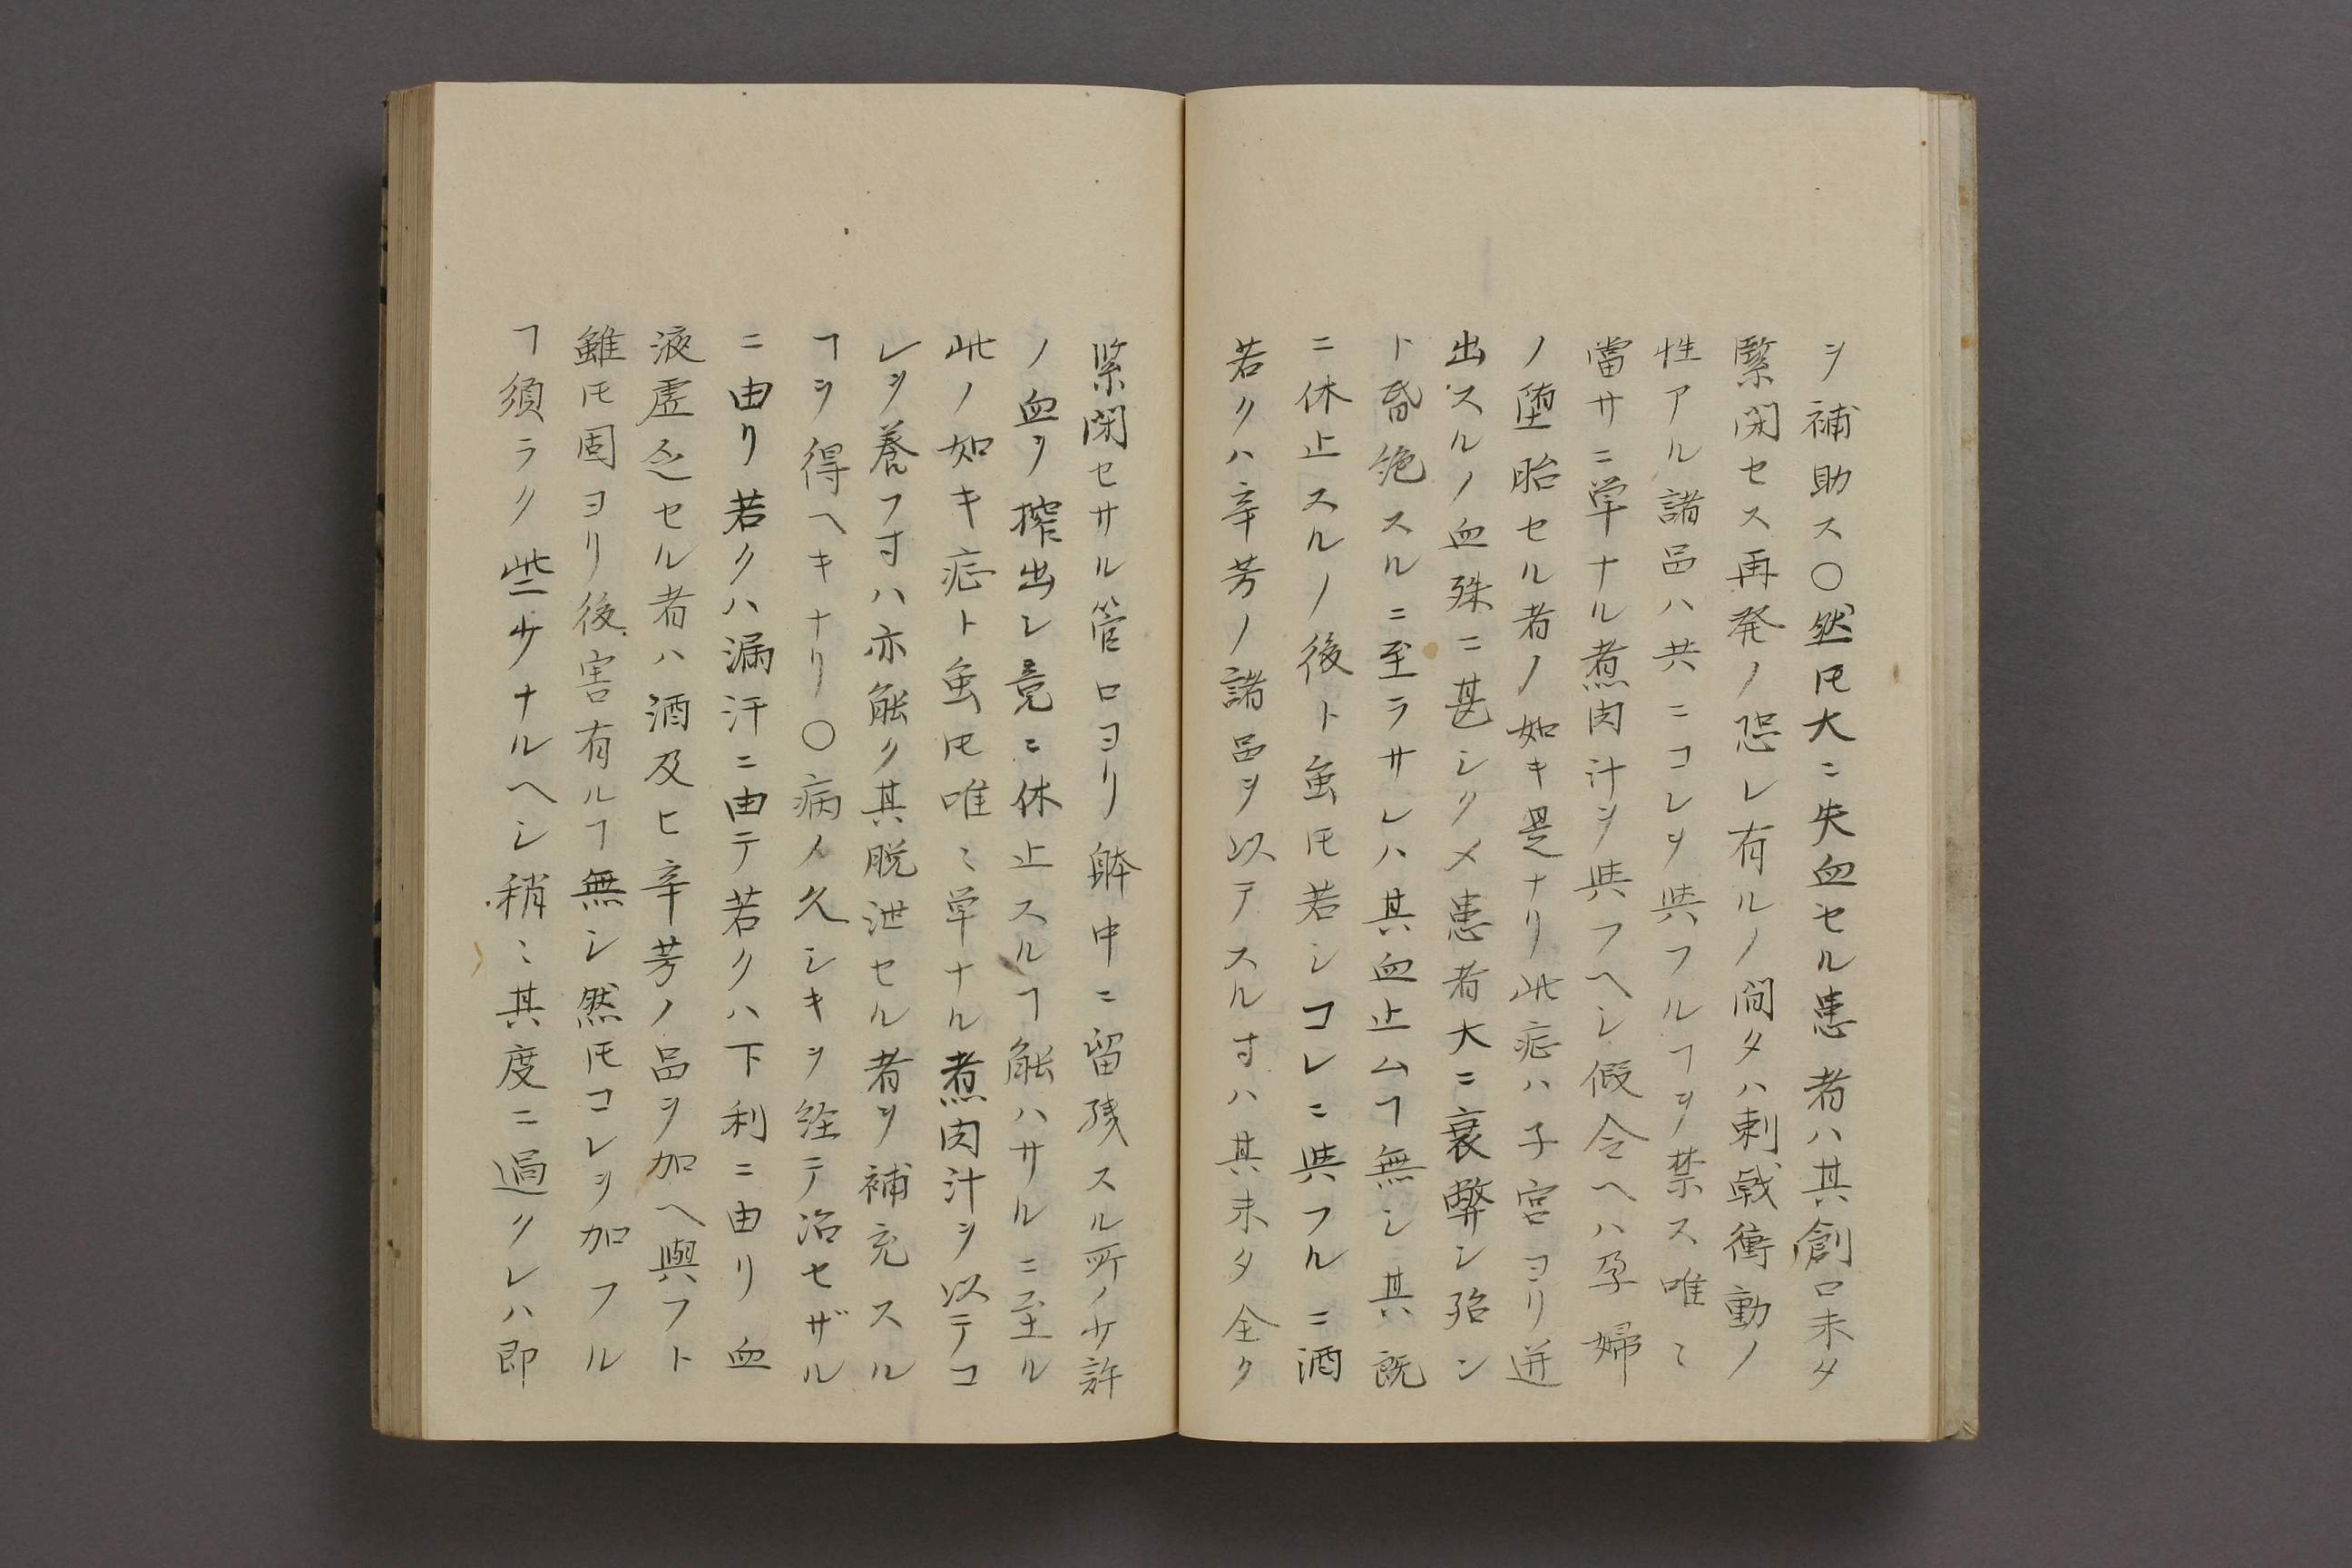 ヲ補助ス〇然𪜈大ニ失血セル患者ハ其創口未タ
緊閉セス再発ノ恐レ有ルノ間タハ刺戟衝動ノ
性アル諸品ハ共ニコレヲ與フルヿヲ禁ス唯〻
當サニ単ナル煮肉汁ヲ與フヘシ假令ヘハ孕婦
ノ堕胎セル者ノ如キ是ナリ此症ハ子宮ヨリ迸
出スルノ血殊ニ甚シクメ患者大ニ衰弊シ殆ン
ト昏絶スルニ至ラサレハ其血止ムヿ無シ其既
ニ休止スルノ後ト虽𪜈若シコレニ與フルニ酒
若クハ辛芳ノ諸品ヲ以テスル寸ハ其未タ全ク
緊閉セサル管口ヨリ躰中ニ留残スル所ノ少許
ノ血ヲ搾出シ竟ニ休止スルヿ能ハサルニ至ル
此ノ如キ症ト虽𪜈唯〻単ナル煮肉汁ヲ以テコ
レヲ養フ寸ハ亦能ク其脱泄セル者ヲ補充スル
ヿヲ得ヘキナリ〇病ノ久シキヲ経テ治セザル
ニ由リ若クハ漏汗ニ由テ若クハ下利ニ由リ血
液虚乏セル者ハ酒及ヒ辛芳ノ品ヲ加ヘ與フト
雖𪜈固ヨリ後害有ルヿ無シ然𪜈コレヲ加フル
ヿ須ラク些少ナルヘシ稍〻其度ニ過クレハ即